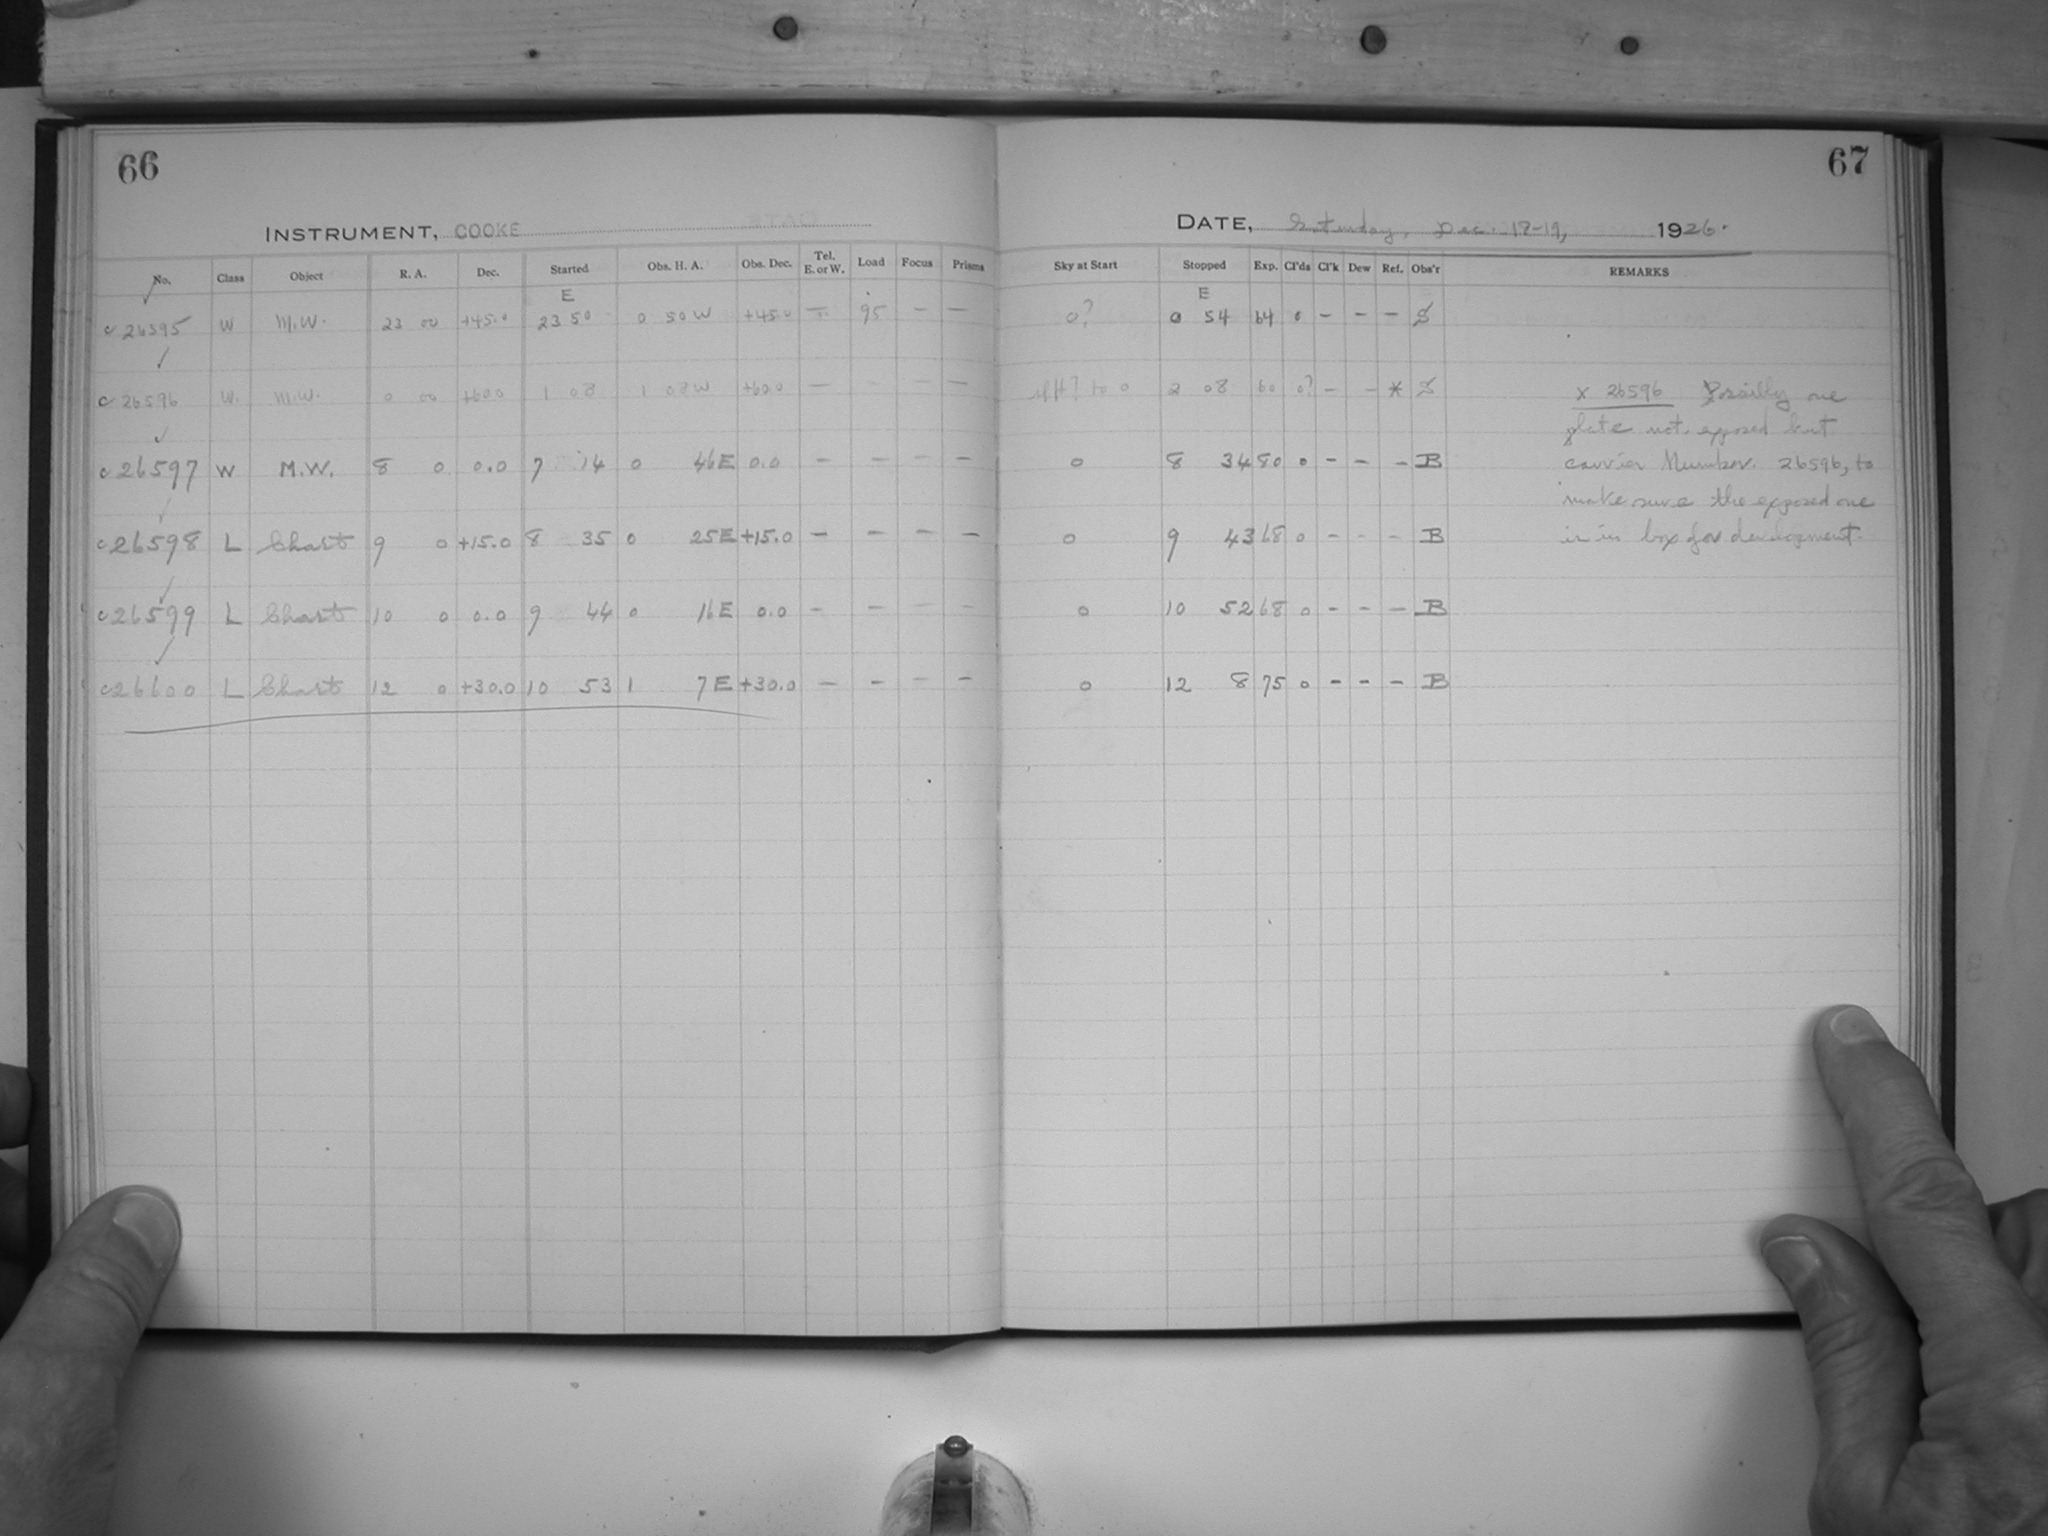 66
67
INSTRUMENT, COOKE
DATE, Saturday, Dec. 18-19, 1926.
No. Class Object R. A. Dec. Started Obs. H. A. Obs. Dec. Tel. E. or W. Load Focus Prisms Sky at Start Stopped Exp. Cl'ds Cl'k Dew Ref. Obs'r REMARKS
E E
c 26595 W M.W. 23 00 +45.0 23 50 0 50 W +45.0 — 95 — — 0? 0 54 64 0 – – – S
c 26596 W. M.W. 0 00 +60.0 1 08 1 08 W +60.0 — - — — to 0 2 08 60 0? – – * S x 26596 Possibly one
plate not exposed but
c 26597 W M.W. 8 0 0.0 7 14 0 46 E 0.0 – – – – 0 8 34 80 0 – – – B carrier Number. 26596, to
make sure the exposed one
c 26598 L Chart 9 0 +15.0 8 35 0 25 E +15.0 – – – – 0 9 43 68 0 – – – B is in box for development.
c 26599 L Chart 10 0 0.0 9 44 0 16 E 0.0 – – – – 0 10 52 68 0 – – – B
c 26600 L Chart 12 0 +30.0 10 53 1 7 E +30.0 – – – – 0 12 8 75 0 – – – B